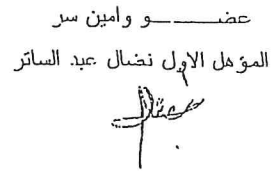 عضـــــــو وامين سر
المؤهل الاول نضال عبد الساتر